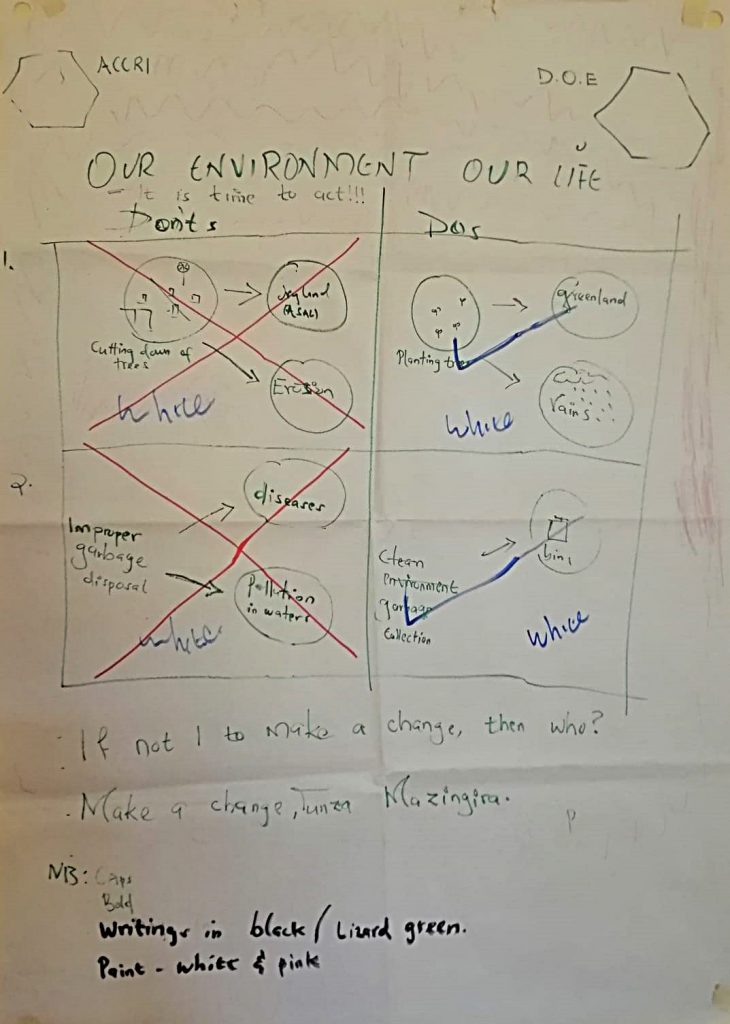 ACCRI
D.O.E
OUR ENVIRONMENT OUR LIFE
- It is time to act!!!
Don'ts
Dos
1.
Cutting down of
trees
(ASAL)
Erosion
White
Planting trees
greenland
rains
White
2.
Improper
garbage
disposal
diseases
Pollution
in waters
White
Clean
environment
garbage
Collection
bins
White
If not I to make a change, then who?
Make a change, Tunza Mazingira.
P
NB: Caps
Bold
Writings in black / Lizard green.
Paint - white & pink